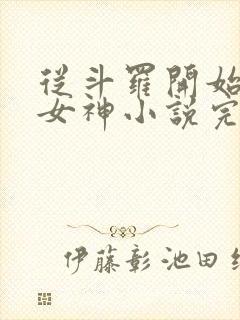 從斗羅開始
女神小說完
伊藤彰池田